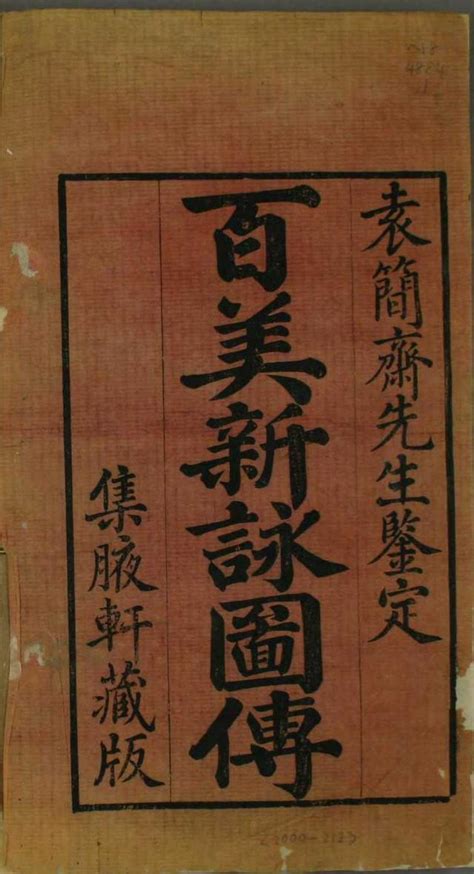 袁簡齋先生鑒定
百美新詠圖傳
集腋軒藏版